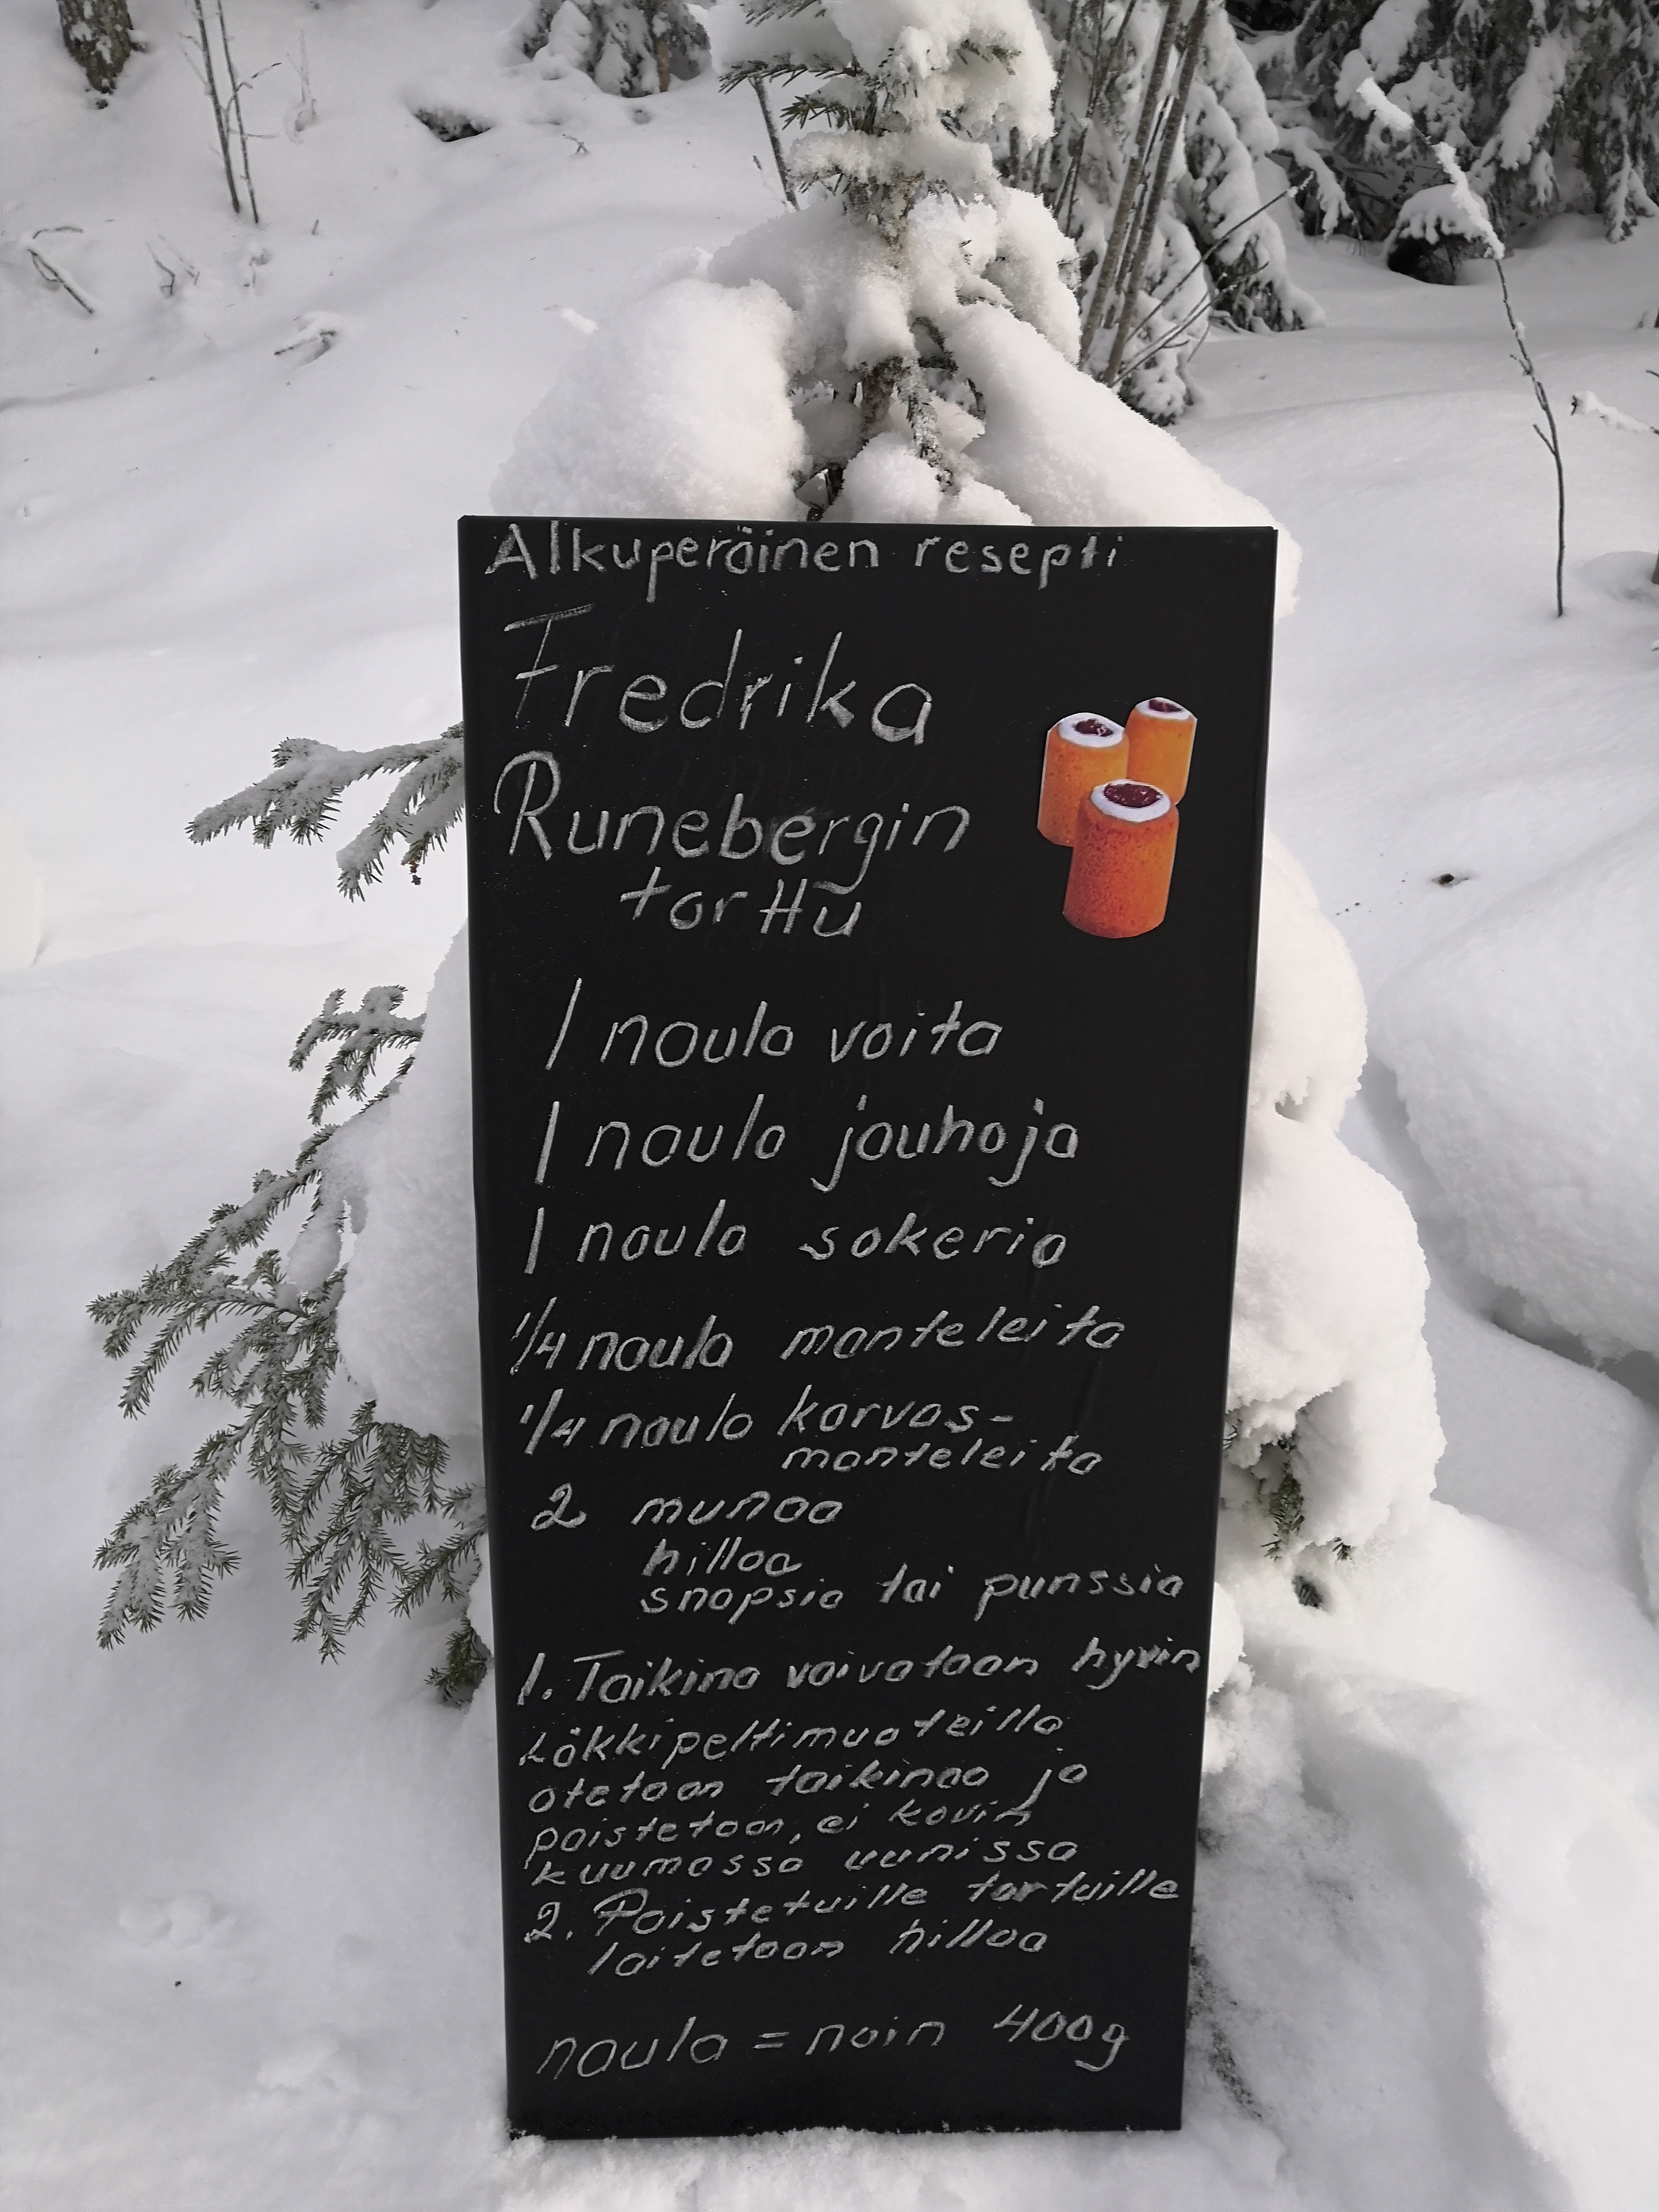 Alkuperäinen resepti
Fredrika
Runebergin
torttu
1 naula voita
1 naula jauhoja
1 naula sokeria
1/4 naula manteleita
1/4 naula karvas-
manteleita
2 munaa
hilloa
snapsia tai punssia
1. Taikina vaivataan hyvin
Läkkipeltimuoteilla
otetaan taikinaa ja
paistetaan, ei kovin
kuumassa uunissa
2. Paistetuille tortuille
laitetaan hilloa
naula = noin 400g